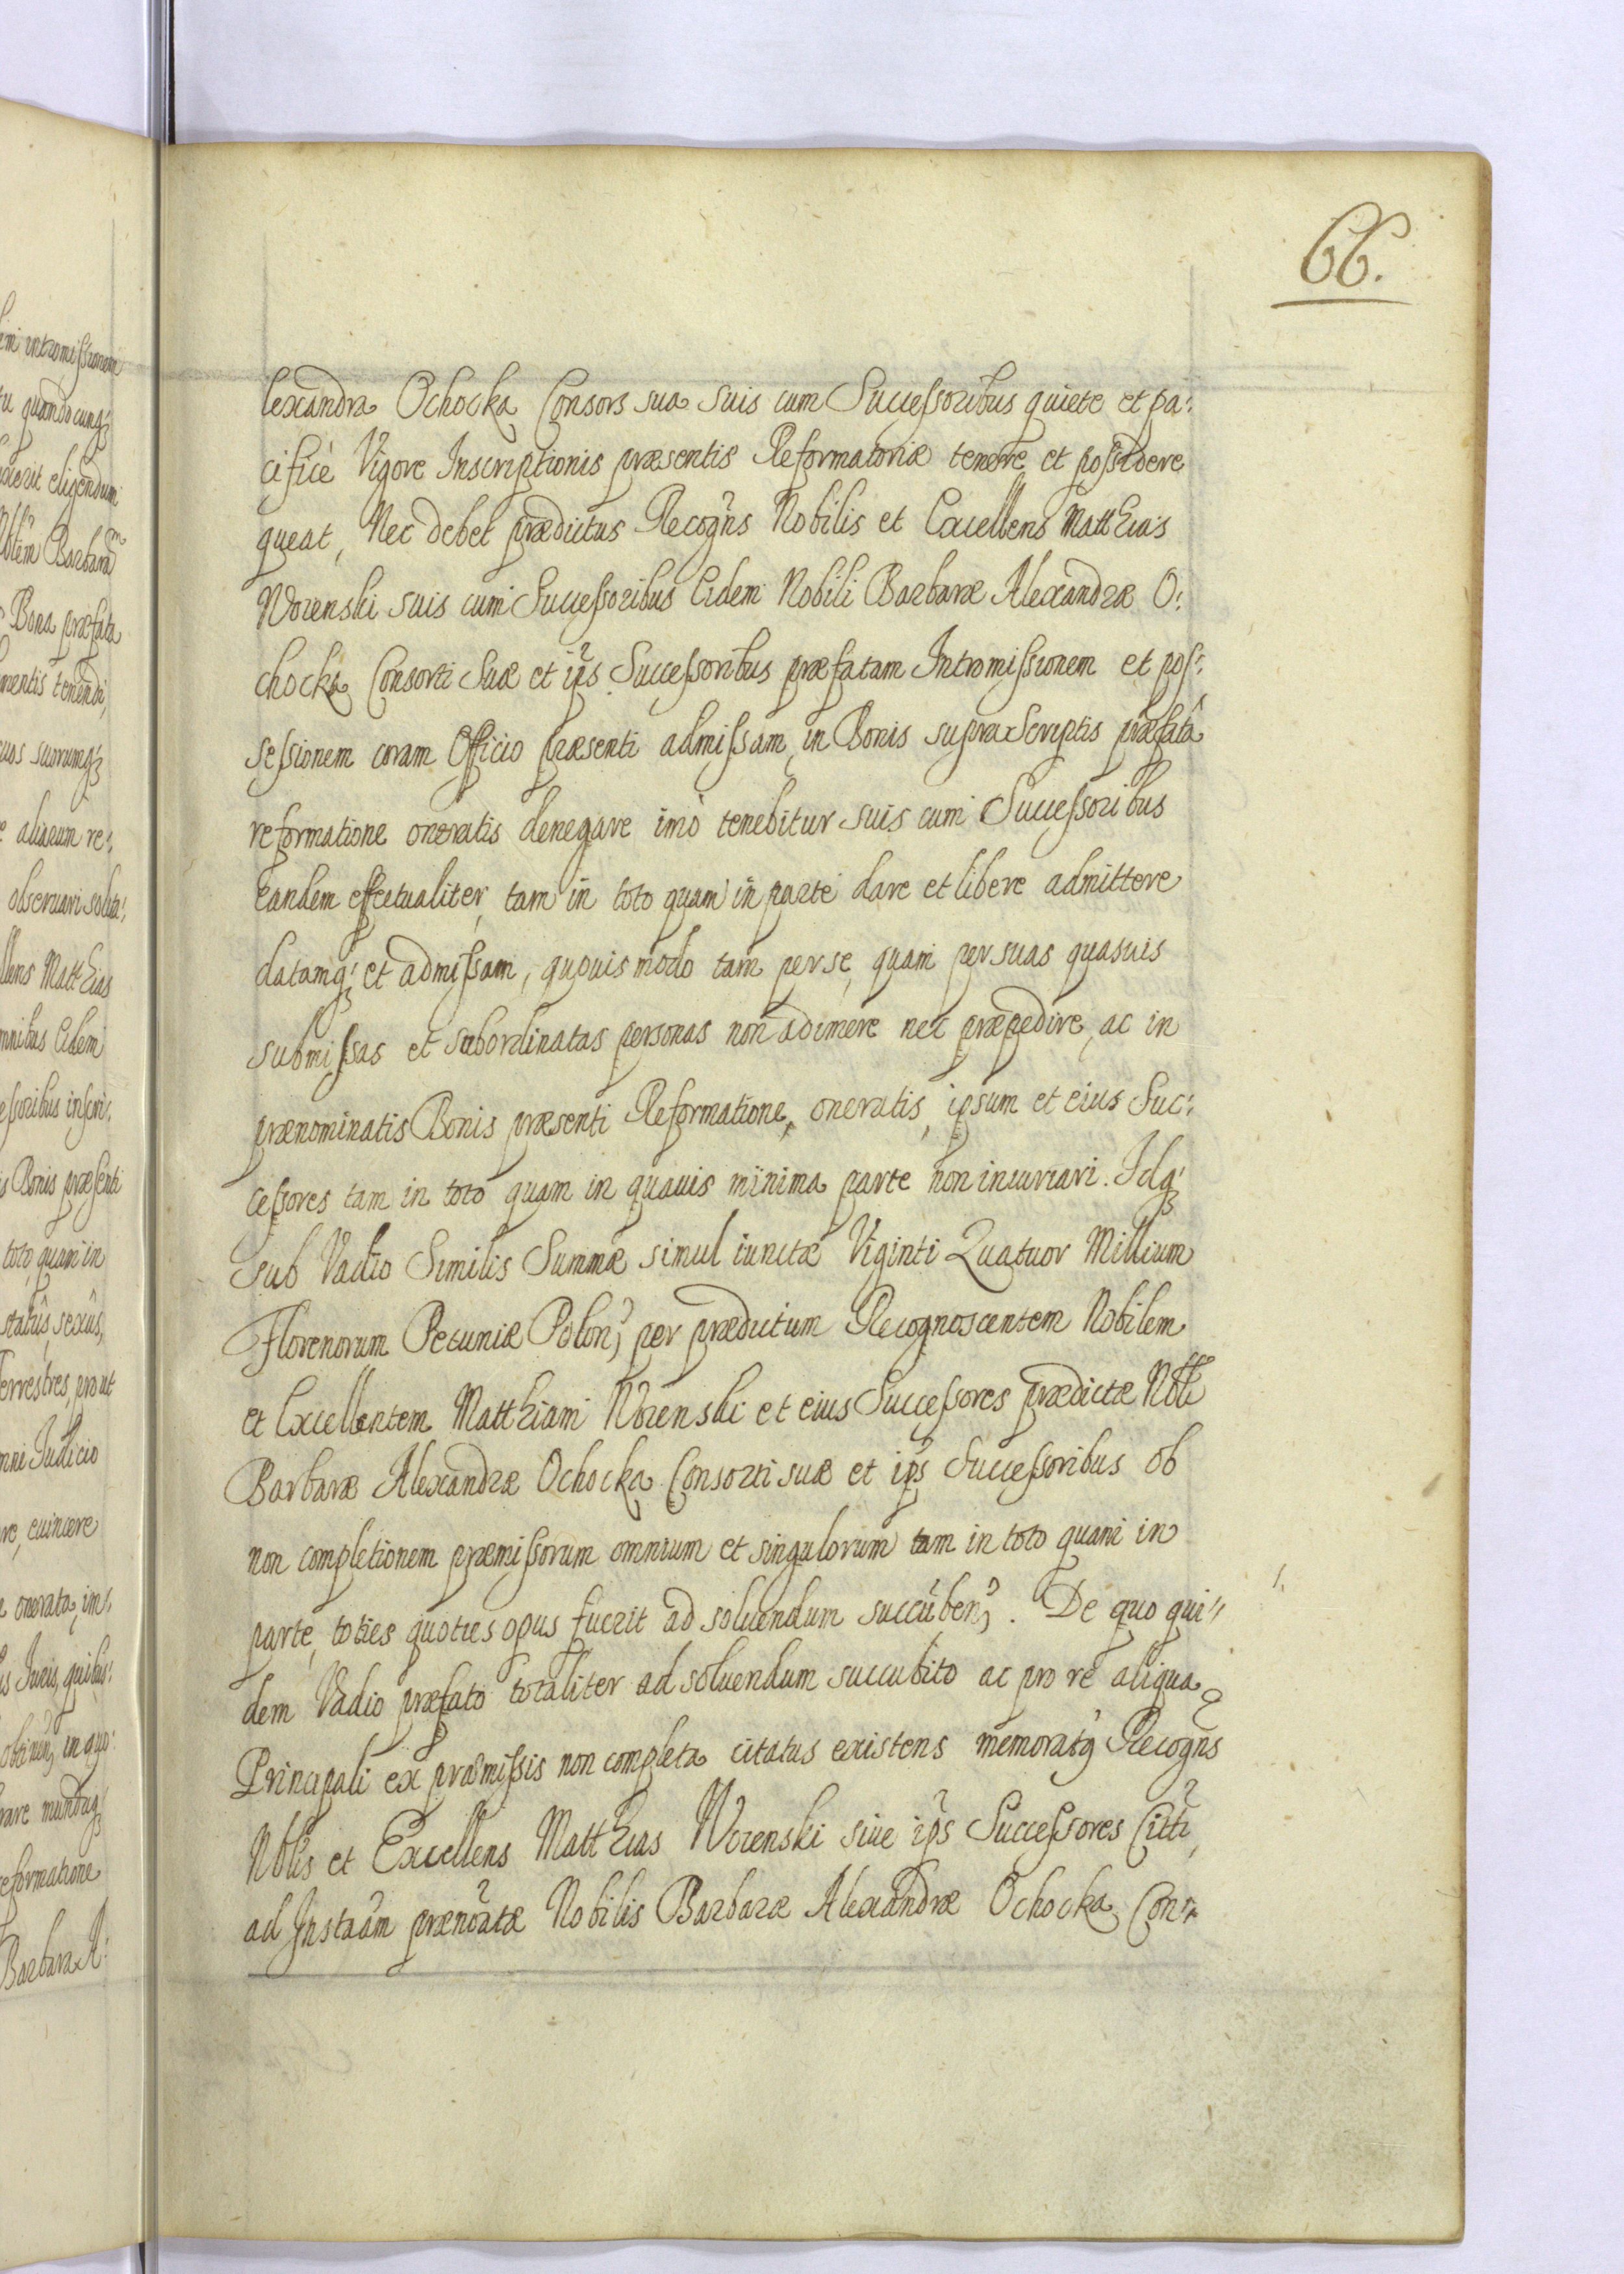 66.
lexandra Ochocka Consors sua suis cum Successoribus quiete et pa:
cificè Vigore Inscriptionis præsentis Reformatoriæ tenere et possidere
queat, Nec debet prædictus Recogns Nobilis et Excellens Matthias
Worenski suis cum Successoribus Eidem Nobili Barbaræ Alexandræ O:
chocka Consorti suæ et ips Successoribus præfatam Intromissionem et pos:
sessionem coram Officio præsenti admissam in Bonis supraScriptis præfatâ
reformatione oneratis denegare imò tenebitur suis cum Successoribus
Eandem effectualiter, tam in toto quam in parte dare et libere admittere
datamq; et admissam, quouis modo tam per se, quam per suas quasuis
submissas et subordinatas personas non adimere nec præpedire, ac in
prænominatis Bonis præsenti Reformatione, oneratis, ipsum et eius Suc:
cessores tam in toto quam in quauis minima parte non iniuriari. Idq;
sub Vadio Similis Summæ simul iunctæ Viginti Quatuor Millium
Florenorum Pecuniæ Polon; per prædictum Recognoscentem Nobilem
et Excellentem Matthiam Worenski et eius Successores prædictæ Nbli
Barbaræ Alexandræ Ochocka Consorti suæ et ips Successoribus ob
non completionem præmissorum omnium et singulorum tam in toto quam in
parte, toties quoties opus fuerit ad soluendum succuben;. De quo qui:
dem Vadio præfato totaliter ad soluendum succubito ac pro re aliqua
Principali ex præmissis non completa citatus existens memoratg Recogns
Nblis et Excellens Matthias Worenski siue ips Successores Citti,
ad Instaâm prænôtæ Nobilis Barbaræ Alexandræ Ochocka Con: